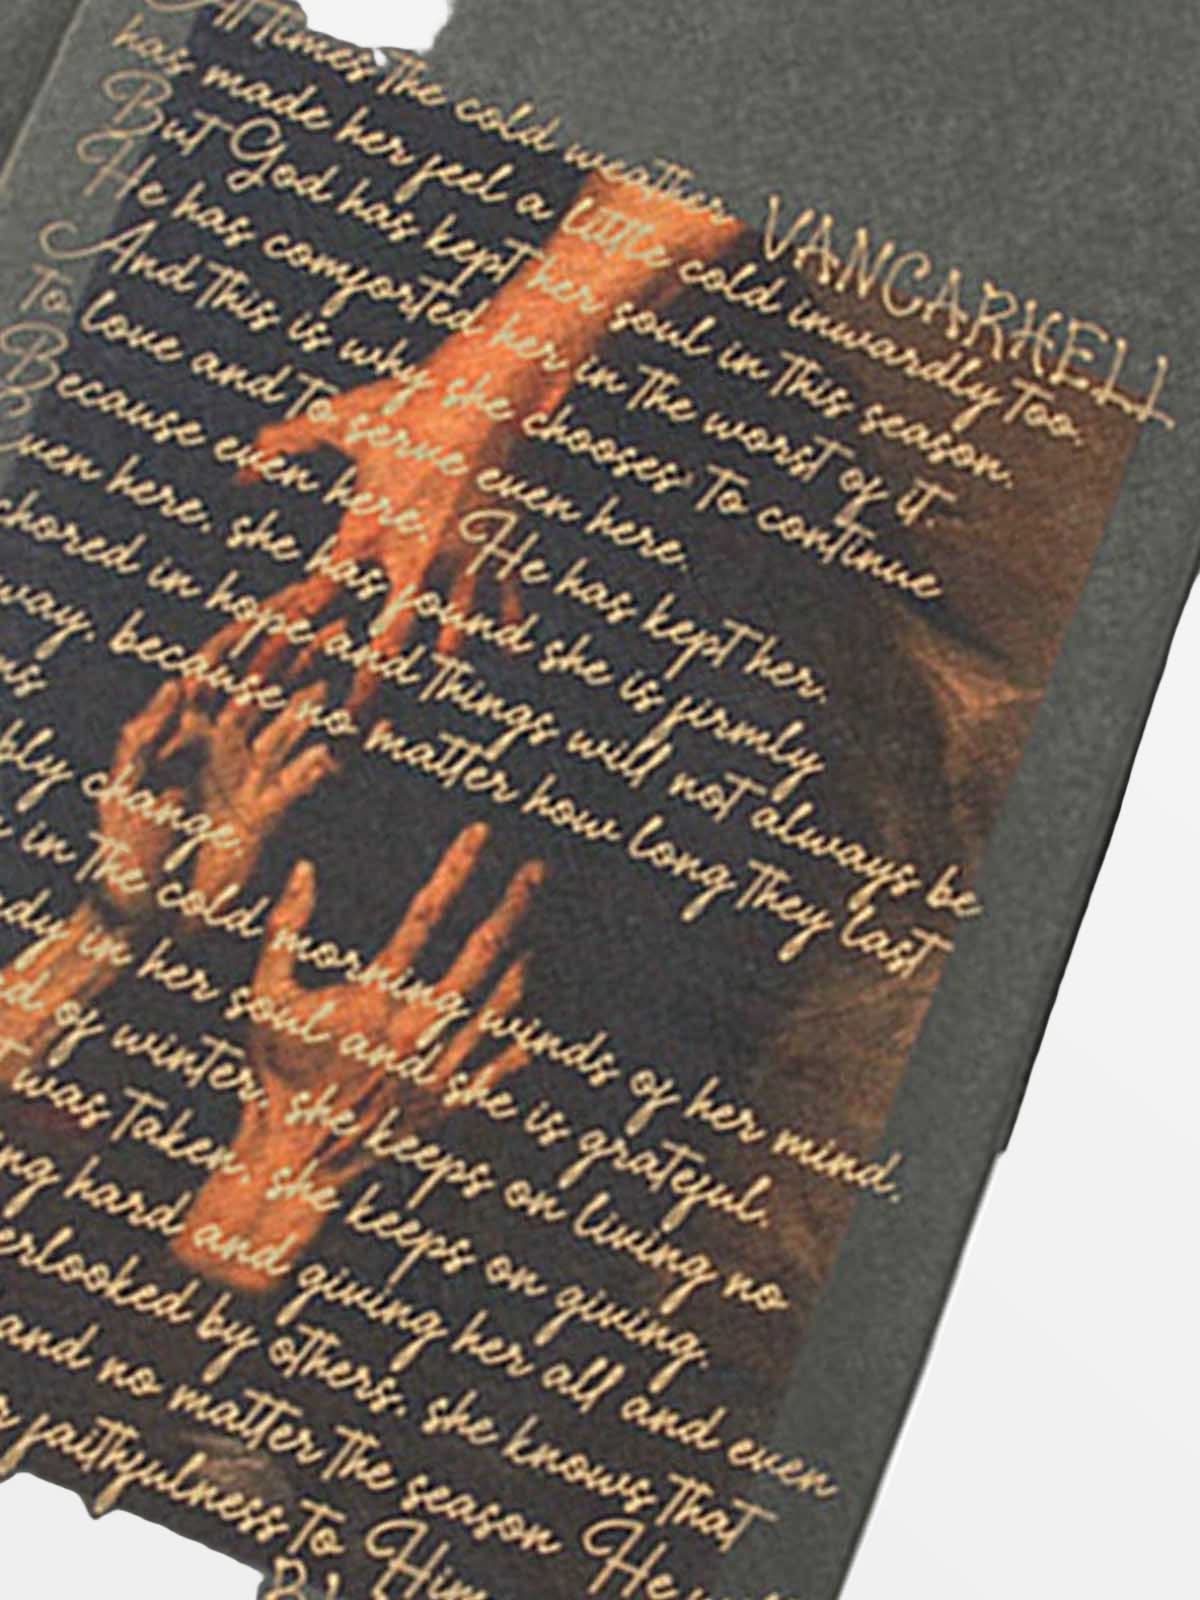 At times the cold weather
VANCARHELL
has made her feel a little cold inwardly too.
But God has kept her soul in this season.
He has comforted her in the worst of it.
And this is why she chooses to continue
To love and to serve even here.
Because even here, He has kept her.
Even here, she has found she is firmly
chored in hope and things will not always be
way, because no matter how long they last
ms
bly change.
in the cold morning winds of her mind,
ady in her soul and she is grateful.
ed of winter, she keeps on living no
t was taken, she keeps on giving.
ng hard and giving her all and even
erlooked by others, she knows that
and no matter the season He
r faithfulness to Him